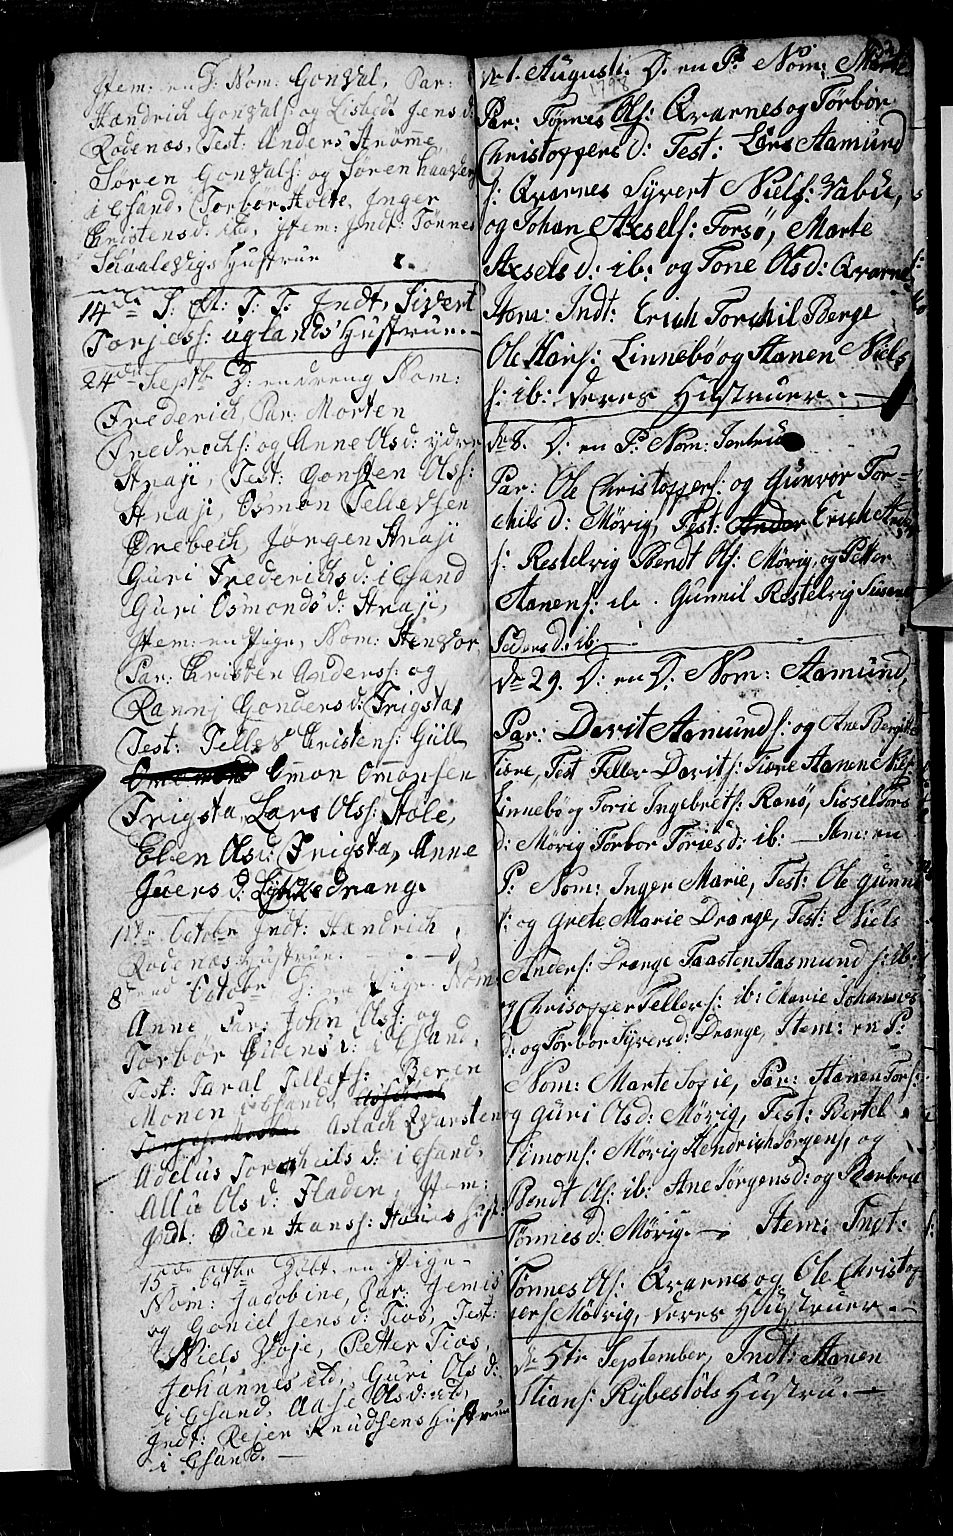 Item: en D: Nom: Gonval, Par:
Hændrich Gonvals: og Lisbeth Jens d:
Rodenæs, Test: Anders Strømme,
Søren Gonvals: og Søren Haavær
i Chsand, Torbør Holte, Inger
Christensd: ibd, Item: Indt: Tønnes
Schaalevigs Hustrue
14de S: Eft: T: F: Indt, Sivert
Torjess: uglands Hustrue. —
24de Septb D: en dreng Nom:
Frederich, Par: Morten
Fredrechs: og Anne Olsd: ydre
Straji, Test: Gonsten Olss:
Straji, Osmon Tellevsen
Drebech, Jørgen Straji
Guri Frederichsd: i Chsand
Guri Osmondsd: Straji,
Item: en Pige, Nom: Stenvor
Par: Christen Anderss: og
Ranni Gondersd: Frigsta,
Test: Tellev Christens: Gill
Omon Omonsen
Frigsta, Lars Olss: Stole,
Eben Olsd: Frigsta, Anne
Juers d: Lyckedrang.
1ste Octobr Indt: Hændrich
Rodenæs Hustrue. —
8 Octobr D: en Pige Nom:
Anne Par: John Olss: og
Torbør Evensd: i Chsand,
Test: Taral Tellefs: Beren
Monen i Chsand,
Aslach Qvarsten
Adelus Torcheilsd: i Chsand,
Allu Ols d: Fladen, Item:
Indt: Even Hanss: Hust:
15de Octbr Døbt en Pige
Nom: Jacobine, Par: Jemis
og Goniel Jensd: Tios, Test:
Niels Voje, Petter Tios,
Johannes ibd, Guri Ols d:
i Chsand, Aase Olsd: ibd,
Indt: Rejer Knudsens Hustrue
i Chsand. —
dn 1. Augusti. D: en P: Nom: Marte
1798
Par: Tønnes Ols: Qvarnes og Torbor
Christoffers d: Test: Lars Aamund
s: Qvarnes Syvert Niels: Vabu,
og Johan Axsels: Forsø, Marte
Axsels d: ib: og Tone Olsd: Qvarnes
Item: Indt: Erich Torchil Berge
Ole Hans: Linnebø og Aanen Niels
s: ib: Veres Hustruer. —
dn 8. D: en P: Nom: Jertrud
Par: Ole Christoffers: og Gunvor Tor-
chils d: Mørig, Test: Ander Erich Anders
s: Restelvig Bendt Ols: Mørig, og Petter
Aanens: ib. Gunnil Restelvig Susanne
Pedersd: ib: —
dn 29. D: en D: Nom: Aamund,
Par: Davit Aamunds: og Ane Bergitte
Tiøre, Test Tellev Davits: Tiøre Aanen Niels
Linnebø og Torie Ingebrets: Ranø, Sissel Tors
d: Mørig Torbor Toriesd: ib: — Item: en
P: Nom: Inger Marie, Test: Ole Gunne
s: og Grete Marie Drange, Test: Niels
Anders: Drange Taasten Aasmunds: ib:
og Chrisoffer Tellevs: ib: Marie Johannes
d: og Torbor Syversd: Drange, Item: en P:
Nom: Marte Sofie, Par: Aanen Tors:
og Guri Olsd: Mørig, Test: Bertel
Simons: Mørig Hendrich Jørgens, og
Bendt Ols: ib: Ane Jørgensd: og Barbroe
Tønnesd: Mørig. — Item: Indt:
Tønnes Ols: Qvarnes og Ole Christof
fers Mørig, Veres Hustruer. —
dn 5te September, Indt: Aanen
Stians: Rybestøls Hustru. —